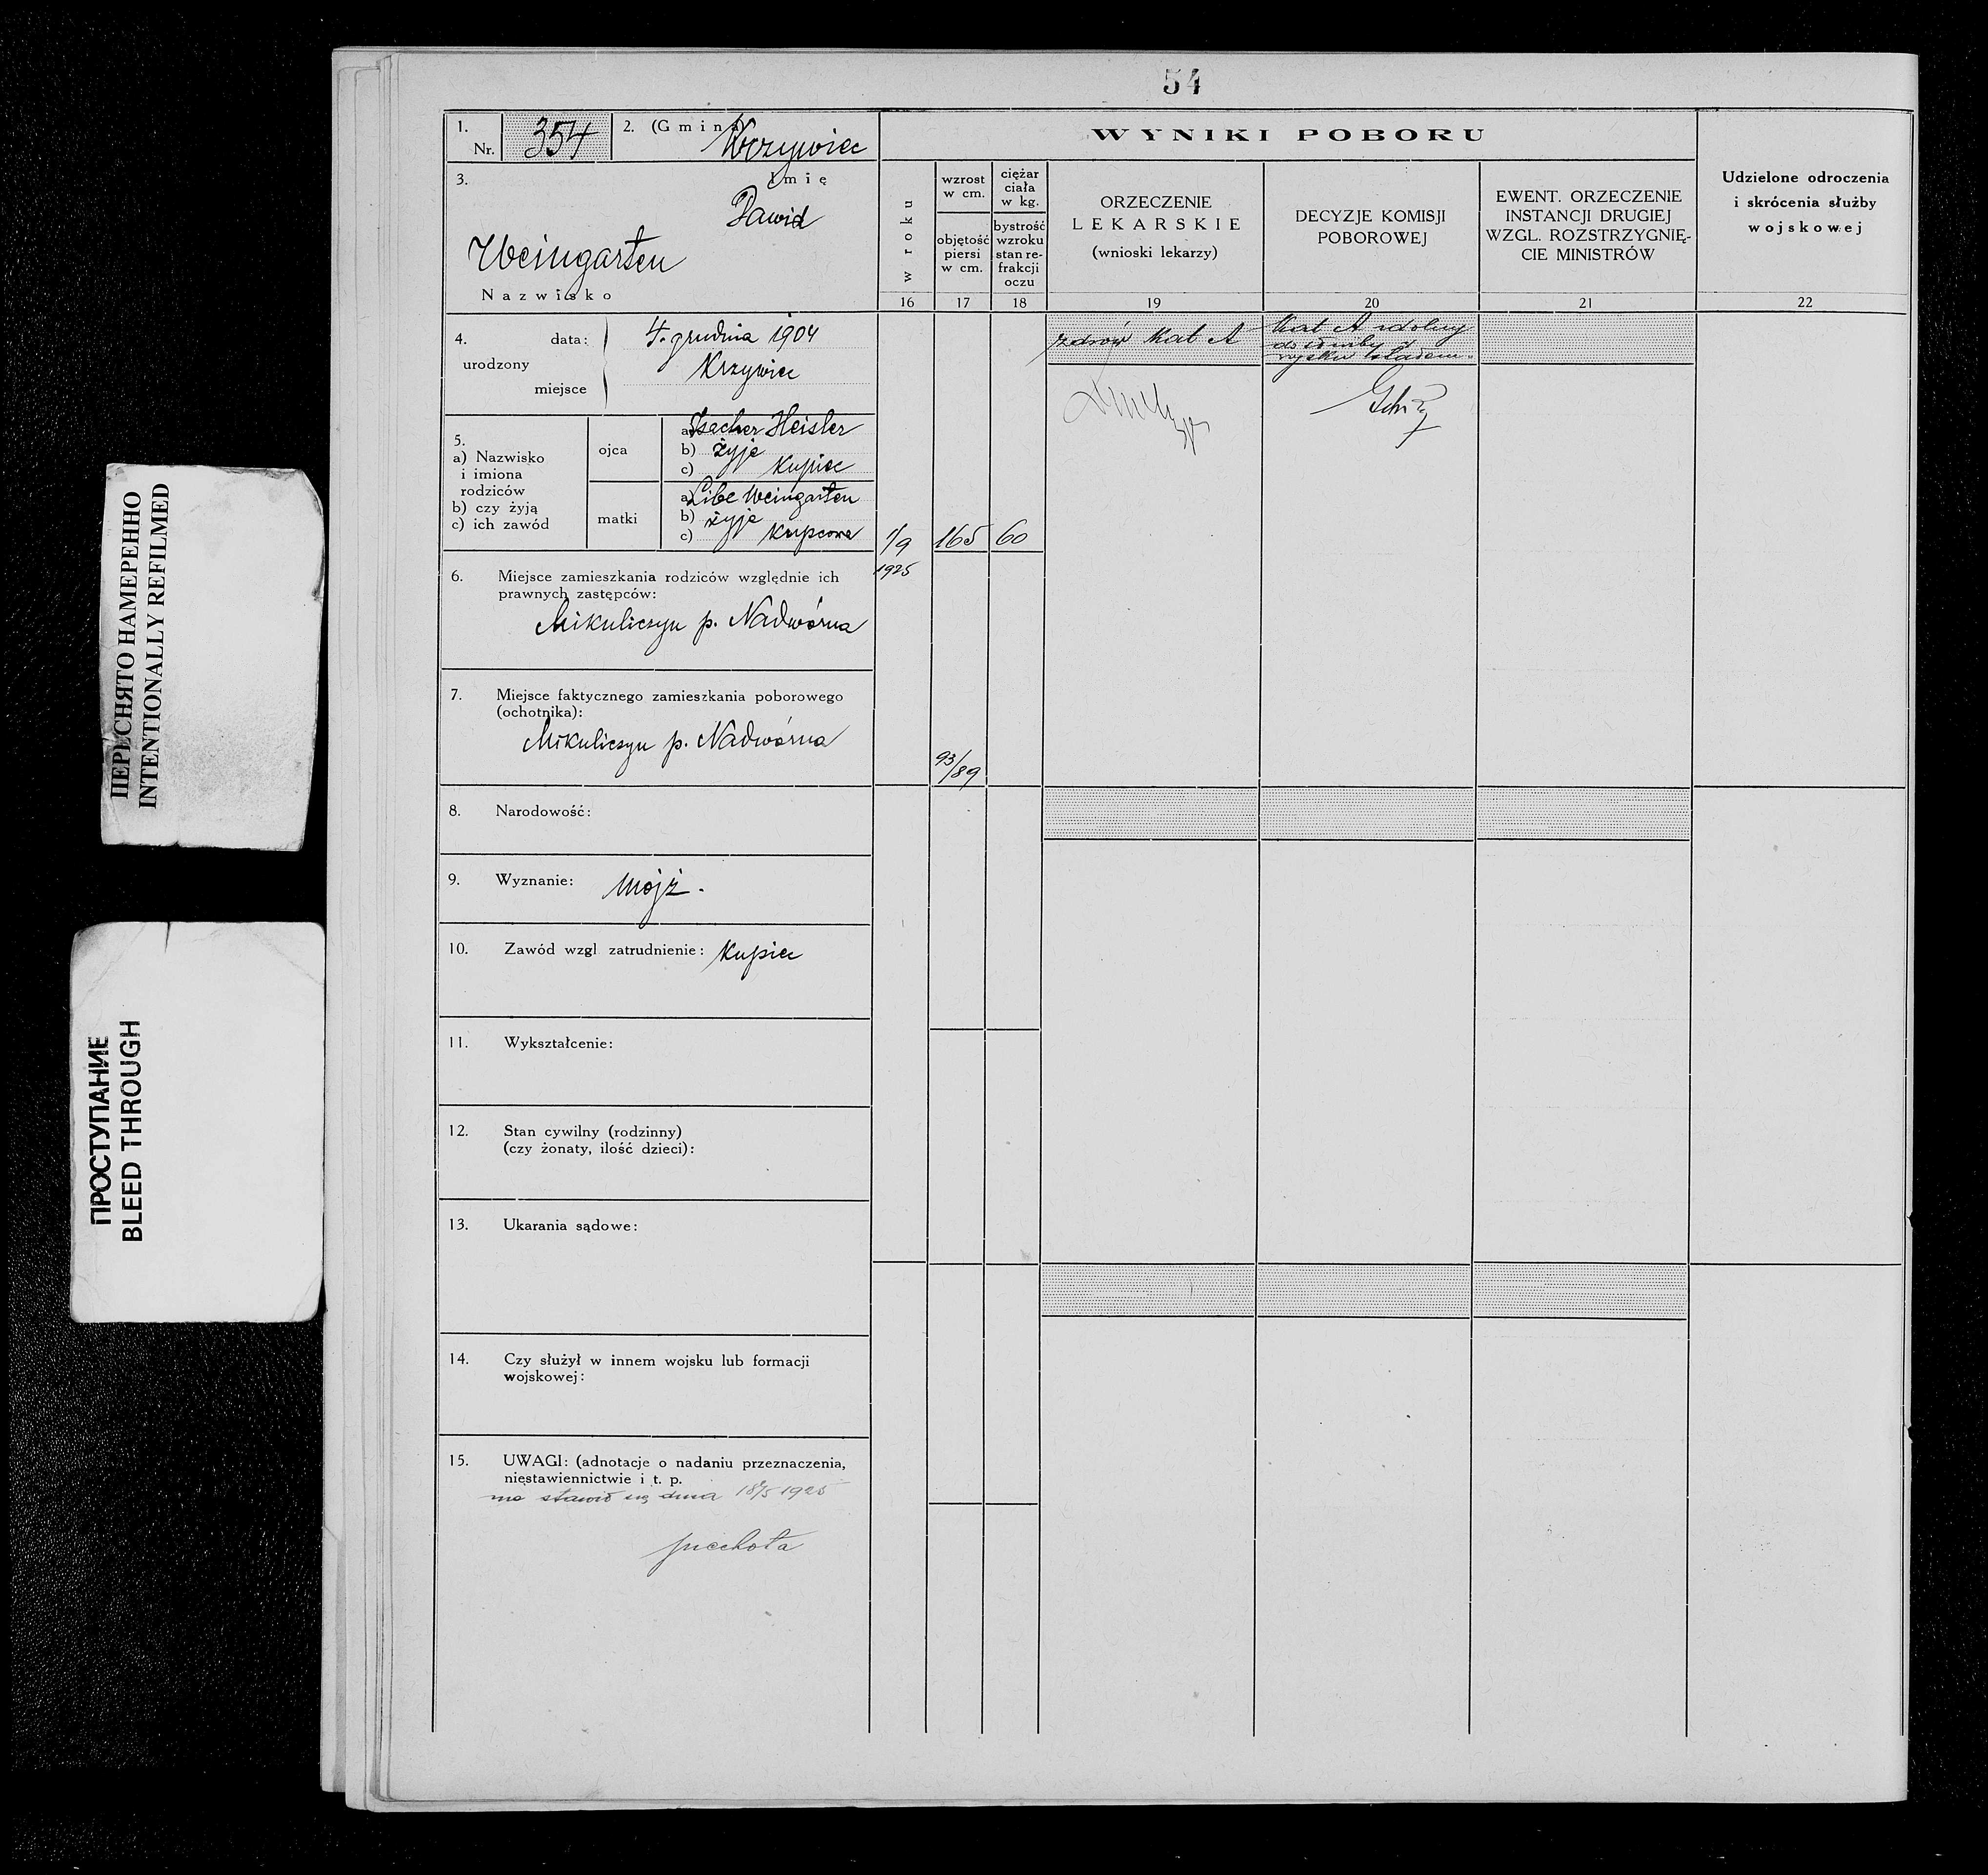 54
1.
Nr. 354
2. (Gmina) Krzywiec
3.
Imię
Dawid
Weingarten
Nazwisko
4.
urodzony
data: 4. grudnia 1904
miejsce Krzywiec
5.
a) Nazwisko
i imiona
rodziców
b) czy żyją
c) ich zawód
ojca
a) Isacher Heisler
b) żyje
c) Kupiec
matki
a) Libe Weingarten
b) żyje
c) Kupcowa
6. Miejsce zamieszkania rodziców względnie ich
prawnych zastępców:
Mikuliczyn p. Nadwórna
7. Miejsce faktycznego zamieszkania poborowego
(ochotnika):
Mikuliczyn p. Nadwórna
8. Narodowość:
9. Wyznanie: mojż.
10. Zawód wzgl. zatrudnienie: Kupiec
11. Wykształcenie:
12. Stan cywilny (rodzinny)
(czy żonaty, ilość dzieci):
13. Ukarania sądowe:
14. Czy służył w innem wojsku lub formacji
wojskowej:
15. UWAGI: (adnotacje o nadaniu przeznaczenia,
niestawiennictwie i t. p.
ma stawić się dnia 18/5 1925
piechota
WYNIKI POBORU
w roku
16
wzrost
w cm.
objętość
piersi
w cm.
17
ciężar
ciała
w kg.
bystrość
wzroku
stan re-
frakcji
oczu
18
ORZECZENIE
LEKARSKIE
(wnioski lekarzy)
19
DECYZJE KOMISJI
POBOROWEJ
20
EWENT. ORZECZENIE
INSTANCJI DRUGIEJ
WZGL. ROZSTRZYGNIĘ-
CIE MINISTRÓW
21
Udzielone odroczenia
i skrócenia służby
wojskowej
22
1/9
1925
165
60
93/89
zdrów Kat A
Kat A zdolny
do służby
ПЕРЕСНЯТО НАМЕРЕННО
INTENTIONALLY REFILMED
ПРОСТУПАНИЕ
BLEED THROUGH